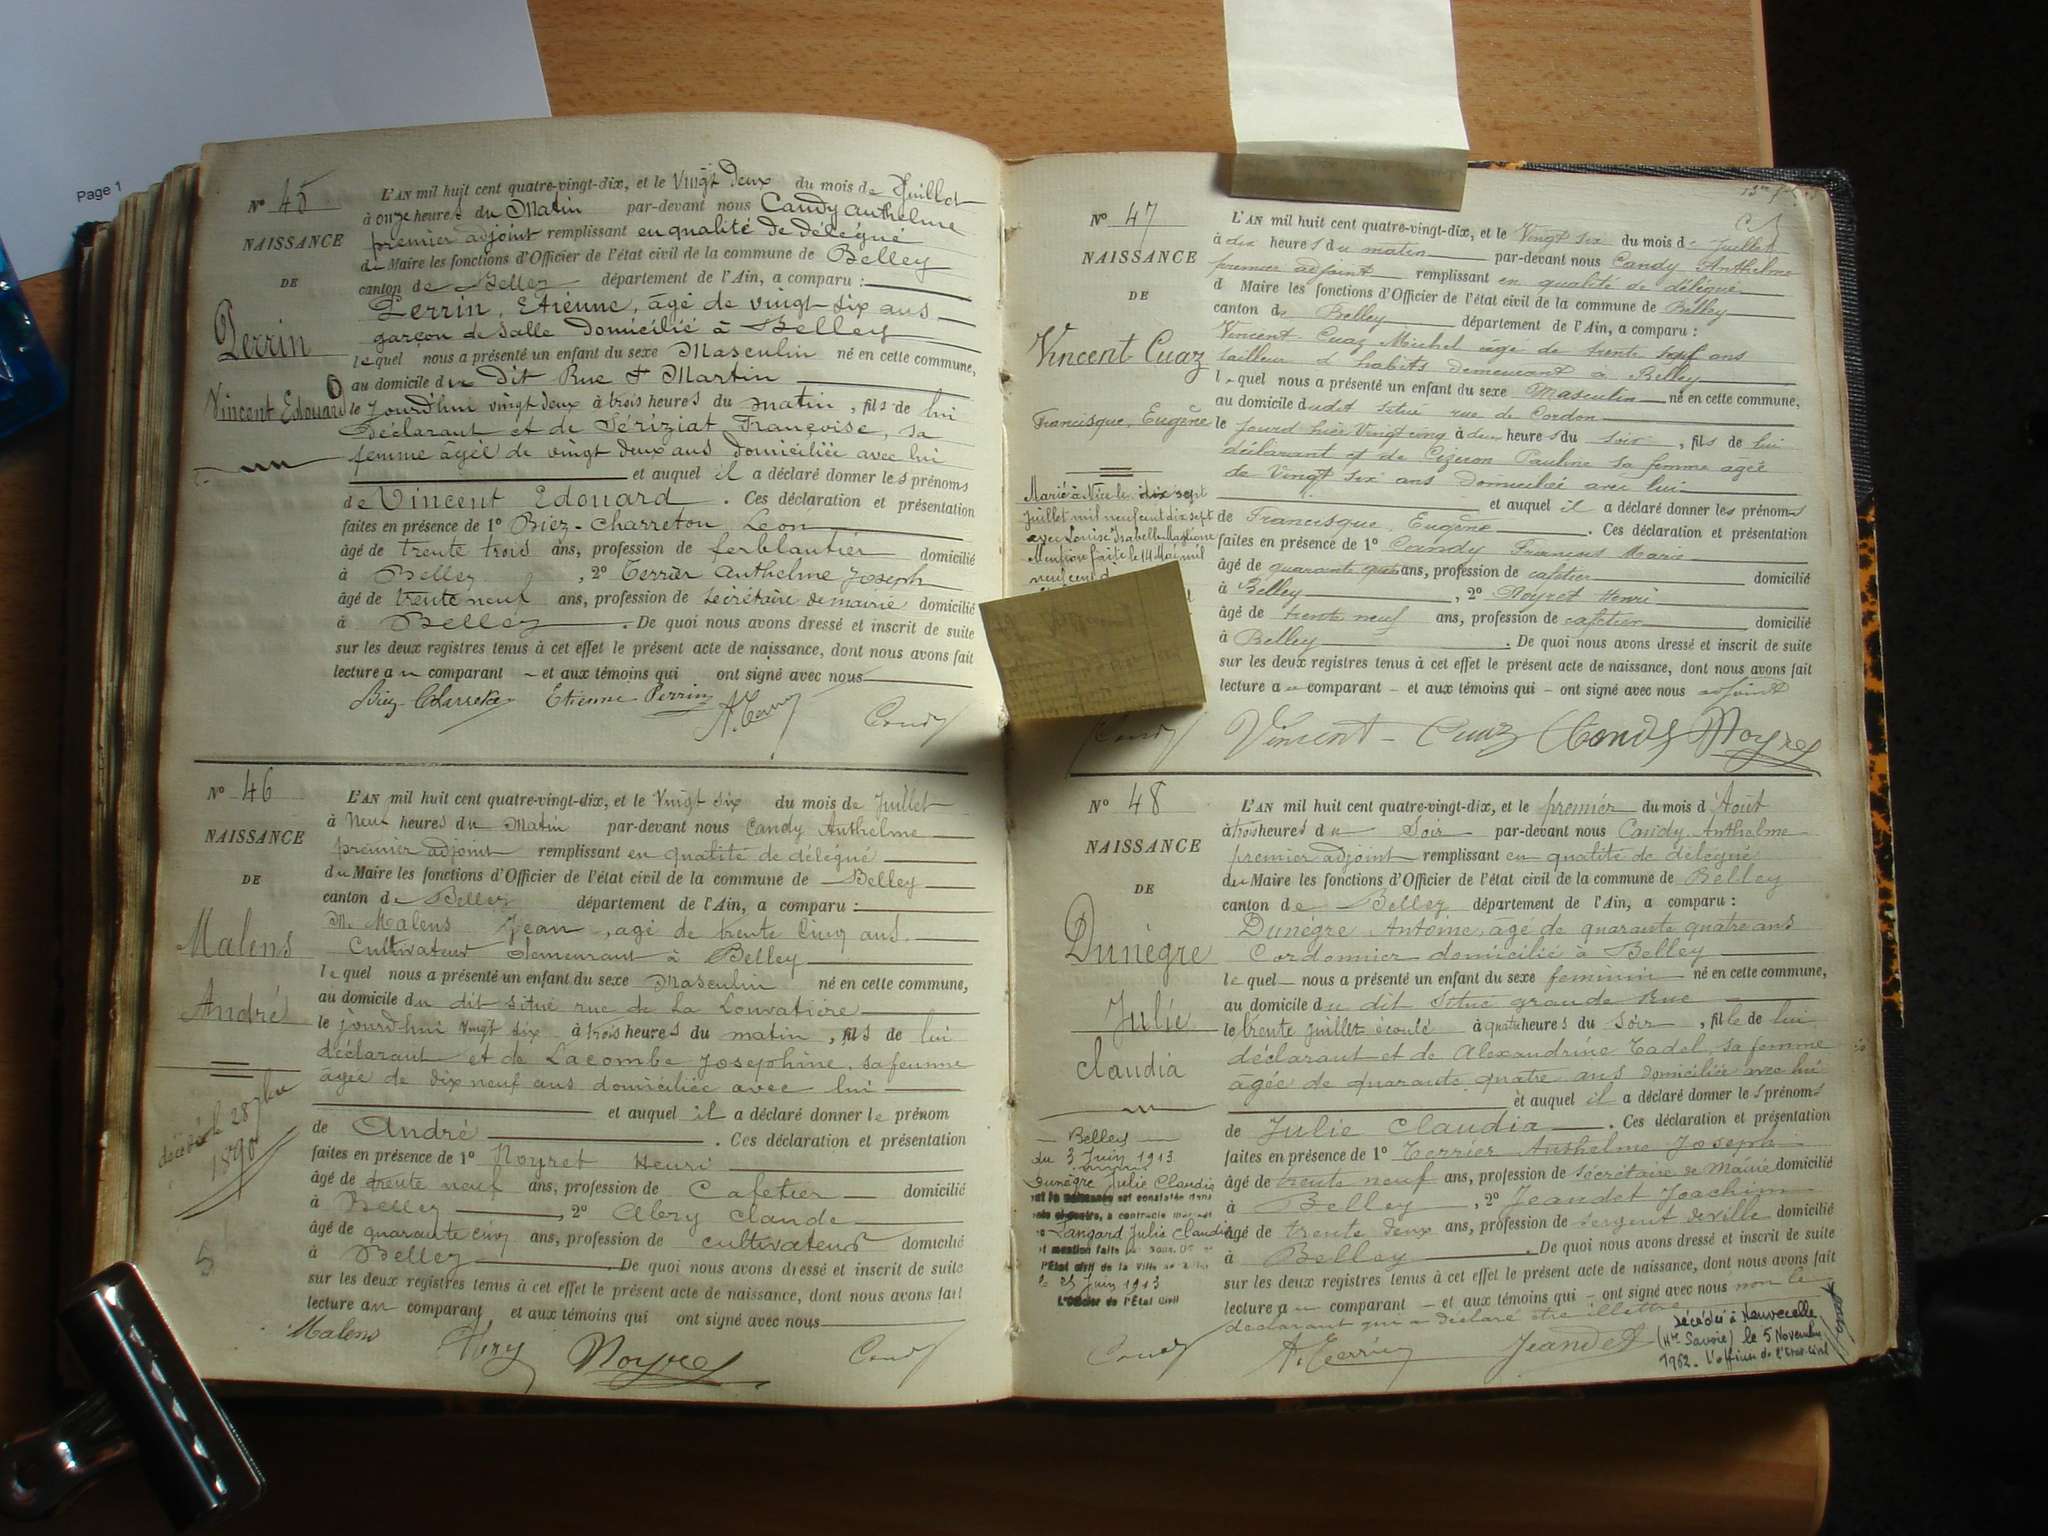 Page 1
N° 45
NAISSANCE
DE
Perrin
Vincent Edouard
L'AN mil huit cent quatre-vingt-dix, et le Vingt Deux du mois de Juillet
à onze heures du Matin par-devant nous Candy Anthelme
premier adjoint remplissant en qualité de délégué
du Maire les fonctions d'Officier de l'état civil de la commune de Belley
canton de Belley département de l'Ain, a comparu :
Perrin, Etienne, âgé de vingt-six ans
garçon de salle Domicilié à Belley
lequel nous a présenté un enfant du sexe Masculin né en cette commune,
au domicile du Dit Rue St Martin
le jourd'hui vingt deux à trois heures du matin, fils de lui
Déclarant et de Sériziat Françoise, sa
femme âgée de vingt deux ans domiciliée avec lui
et auquel il a déclaré donner les prénoms
de Vincent Edouard. Ces déclaration et présentation
faites en présence de 1° Biez-Charreton, Léon
âgé de trente trois ans, profession de ferblantier domicilié
à Belley, 2° Terrier Anthelme Joseph
âgé de trente neuf ans, profession de secrétaire de mairie domicilié
à Belley. De quoi nous avons dressé et inscrit de suite
sur les deux registres tenus à cet effet le présent acte de naissance, dont nous avons fait
lecture au comparant - et aux témoins qui ont signé avec nous
Biez-Charreton Etienne Perrin A. Terrier Candy
N° 46
NAISSANCE
DE
Malens
André
décédé le 28 7bre
1890
5
L'AN mil huit cent quatre-vingt-dix, et le Vingt six du mois de Juillet
à Neuf heures du Matin par-devant nous Candy Anthelme
premier adjoint remplissant en qualité de délégué
du Maire les fonctions d'Officier de l'état civil de la commune de Belley
canton de Belley département de l'Ain, a comparu :
M. Malens Jean, âgé de trente cinq ans
Cultivateur demeurant à Belley
lequel nous a présenté un enfant du sexe Masculin né en cette commune,
au domicile du dit situé rue de La Louvatière
le jourd'hui vingt six à trois heures du matin, fils de lui
déclarant et de Lacombe Joséphine, sa femme
âgée de dix neuf ans domiciliée avec lui
et auquel il a déclaré donner le prénom
de André. Ces déclaration et présentation
faites en présence de 1° Noyret Henri
âgé de trente neuf ans, profession de Cafetier domicilié
à Belley, 2° Abry Claude
âgé de quarante cinq ans, profession de cultivateur domicilié
à Belley. De quoi nous avons dressé et inscrit de suite
sur les deux registres tenus à cet effet le présent acte de naissance, dont nous avons fait
lecture au comparant et aux témoins qui ont signé avec nous
Malens Abry Noyret Candy
N° 47
NAISSANCE
DE
Vincent Cuaz
Francisque, Eugène
Marié à Nice le dix sept
Juillet mil neuf cent dix sept
avec Louise Isabelle
Mention faite le 14 Mai mil
neuf cent
L'AN mil huit cent quatre-vingt-dix, et le Vingt six du mois de Juillet
à dix heures du matin par-devant nous Candy Anthelme
premier adjoint remplissant en qualité de délégué
d Maire les fonctions d'Officier de l'état civil de la commune de Belley
canton de Belley département de l'Ain, a comparu :
Vincent Cuaz Michel âgé de trente sept ans
tailleur d'habits demeurant à Belley
lequel nous a présenté un enfant du sexe Masculin né en cette commune,
au domicile dudit situé rue de Cordon
le jourd'hier Vingt cinq à deux heures du soir, fils de lui
déclarant et de Cizeron Pauline sa femme âgée
de Vingt six ans domiciliée avec lui
et auquel il a déclaré donner les prénoms
de Francisque, Eugène. Ces déclaration et présentation
faites en présence de 1° Candy Francois Marie
âgé de quarante ans, profession de cafetier domicilié
à Belley, 2° Noyret Henri
âgé de trente neuf ans, profession de cafetier domicilié
à Belley. De quoi nous avons dressé et inscrit de suite
sur les deux registres tenus à cet effet le présent acte de naissance, dont nous avons fait
lecture au comparant - et aux témoins qui - ont signé avec nous adjoint
Candy Vincent-Cuaz Candy Noyret
N° 48
NAISSANCE
DE
Dunègre
Julie
Claudia
Belley
du 3 Juin 1913
Dunègre Julie Claudia
est constatée dans
a contracté mariage
Langard Julie Claudia
mention faite par nous
l'État civil de la Ville de
le 25 Juin 1913
L'Officier de l'État Civil
L'AN mil huit cent quatre-vingt-dix, et le premier du mois d'Août
à trois heures du Soir par-devant nous Candy Anthelme
premier adjoint remplissant en qualité de délégué
du Maire les fonctions d'Officier de l'état civil de la commune de Belley
canton de Belley département de l'Ain, a comparu :
Dunègre Antoine, âgé de quarante quatre ans
Cordonnier domicilié à Belley
lequel nous a présenté un enfant du sexe feminin né en cette commune,
au domicile du dit situé grande Rue
le trente juillet écoulé à quatre heures du soir, fille de lui
déclarant et de Alexandrine Tadel, sa femme
âgée de quarante quatre ans domiciliée avec lui
et auquel il a déclaré donner les prénoms
de Julie Claudia. Ces déclaration et présentation
faites en présence de 1° Terrier Anthelme Joseph
âgé de trente neuf ans, profession de secrétaire de Mairie domicilié
à Belley, 2° Jeandet Joachim
âgé de trente deux ans, profession de sergent de ville domicilié
à Belley. De quoi nous avons dressé et inscrit de suite
sur les deux registres tenus à cet effet le présent acte de naissance, dont nous avons fait
lecture au comparant - et aux témoins qui - ont signé avec nous non le
déclarant qui a déclaré être illettré
Candy A. Terrier Jeandet
Décédée à Neuvecelle
(Hte Savoie) le 5 Novembre
1962. L'officier de l'Etat Civil